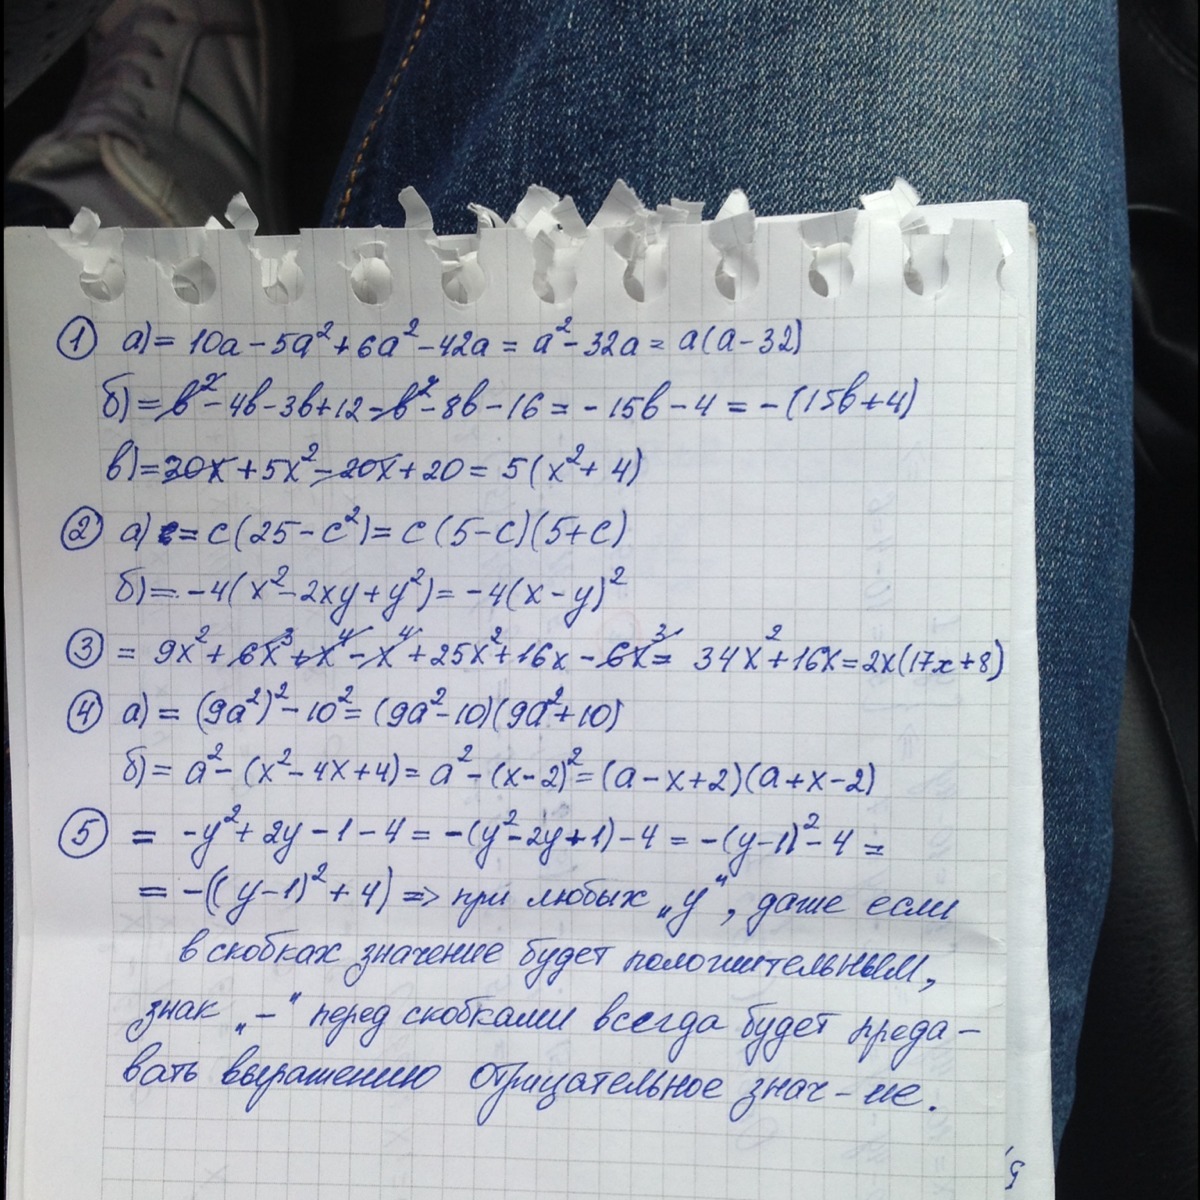 ① а) = 10a - 5a² + 6a² - 42a = a² - 32a = a(a - 32)
б) = b² - 4b - 3b + 12 - b² - 8b - 16 = - 15b - 4 = - (15b + 4)
в) = 20x + 5x² - 20x + 20 = 5(x² + 4)
② а) = c(25 - c²) = c(5 - c)(5 + c)
б) = -4(x² - 2xy + y²) = -4(x - y)²
③ = 9x² + 6x³ + x⁴ - x⁴ + 25x² + 16x - 6x³ = 34x² + 16x = 2x(17x + 8)
④ а) = (9a²)² - 10² = (9a² - 10)(9a² + 10)
б) = a² - (x² - 4x + 4) = a² - (x - 2)² = (a - x + 2)(a + x - 2)
⑤ = -y² + 2y - 1 - 4 = -(y² - 2y + 1) - 4 = -(y - 1)² - 4 =
= -((y - 1)² + 4) => при любых „y“, даже если
в скобках значение будет положительным,
знак „-“ перед скобками всегда будет преда-
вать выражению отрицательное знач-ие.